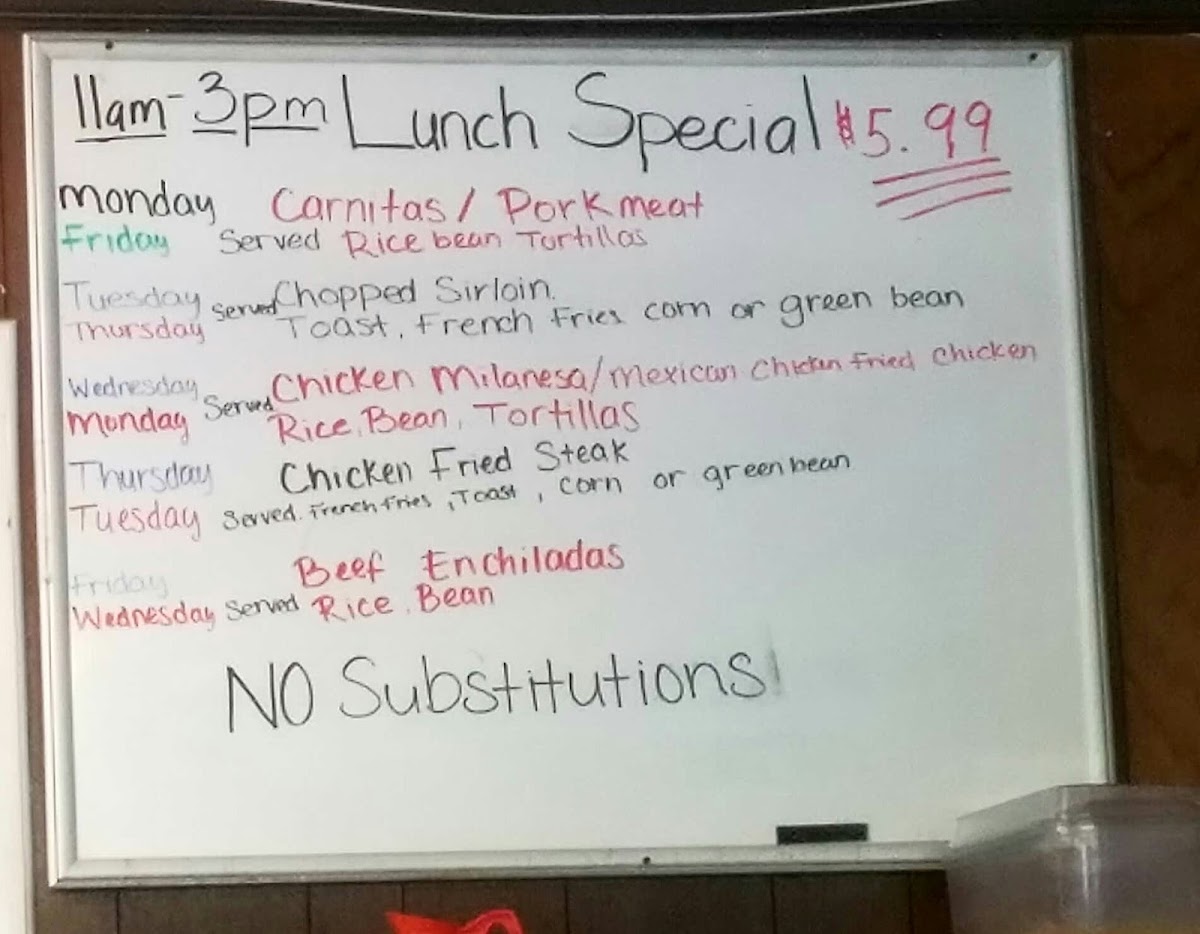 11am-3pm Lunch Special $5.99
monday Carnitas / Pork meat
Friday Served Rice bean Tortillas
Tuesday Served Chopped Sirloin.
Thursday Toast, French Fries corn or green bean
Wednesday Served Chicken Milanesa/mexican Chicken Fried Chicken
monday Rice, Bean, Tortillas
Thursday Chicken Fried Steak
Tuesday Served. French fries, Toast, corn or green bean
Friday Beef Enchiladas
Wednesday Served Rice, Bean
NO Substitutions!